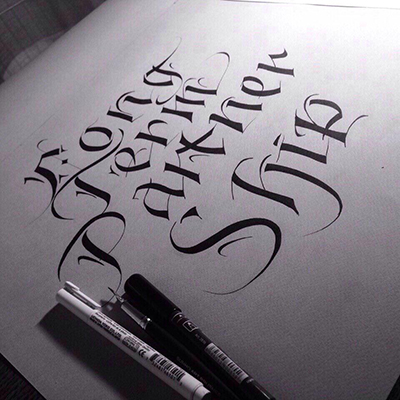 Long
Term
Partner
Ship